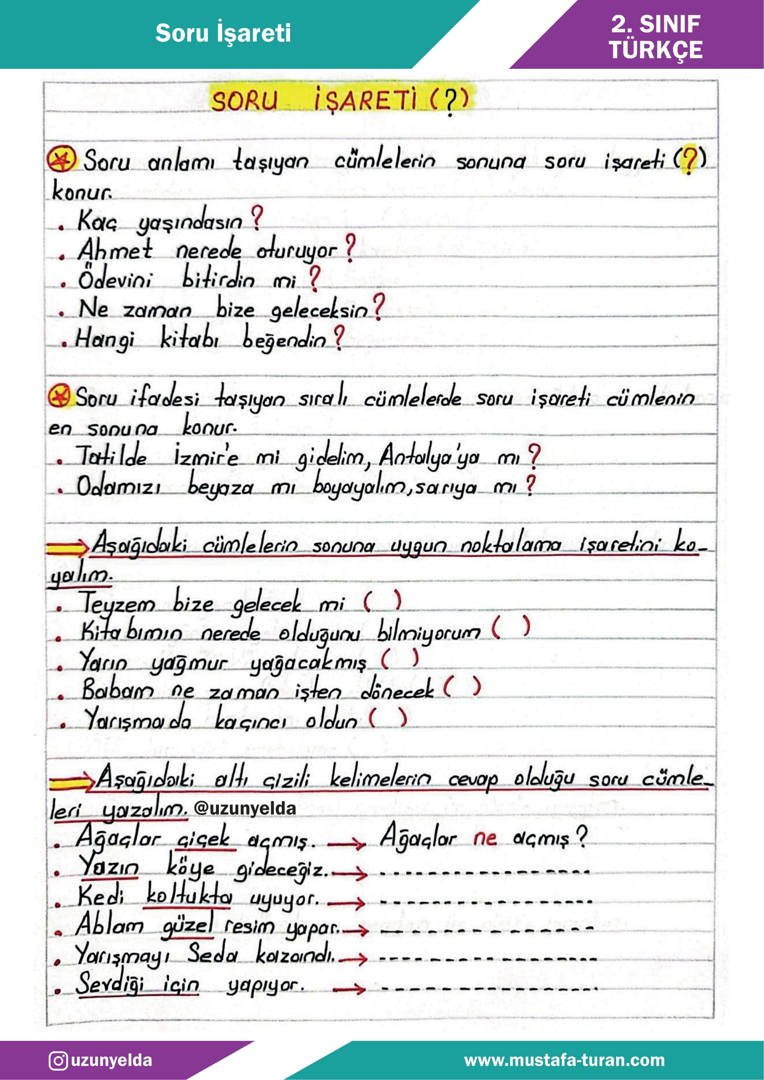 Soru İşareti
2. SINIF
TÜRKÇE
SORU İŞARETİ (?)
Soru anlamı taşıyan cümlelerin sonuna soru işareti (?)
konur.
• Kaç yaşındasın?
• Ahmet nerede oturuyor?
• Ödevini bitirdin mi?
• Ne zaman bize geleceksin?
• Hangi kitabı beğendin?
Soru ifadesi taşıyan sıralı cümlelerde soru işareti cümlenin
en sonuna konur.
• Tatilde İzmir'e mi gidelim, Antalya'ya mı?
• Odamızı beyaza mı boyayalım, sarıya mı?
Aşağıdaki cümlelerin sonuna uygun noktalama işaretini ko-
yalım.
• Teyzem bize gelecek mi ( )
• Kitabımın nerede olduğunu bilmiyorum ( )
• Yarın yağmur yağacakmış ( )
• Babam ne zaman işten dönecek ( )
• Yarışmada kaçıncı oldun ( )
Aşağıdaki altı çizili kelimelerin cevap olduğu soru cümle-
leri yazalım. @uzunyelda
• Ağaçlar çiçek açmış. → Ağaçlar ne açmış?
• Yazın köye gideceğiz. → ----------------
• Kedi koltukta uyuyor. → ----------------
• Ablam güzel resim yapar. → ----------------
• Yarışmayı Seda kazandı. → ----------------
• Sevdiği için yapıyor. → ----------------
uzunyelda
www.mustafa-turan.com